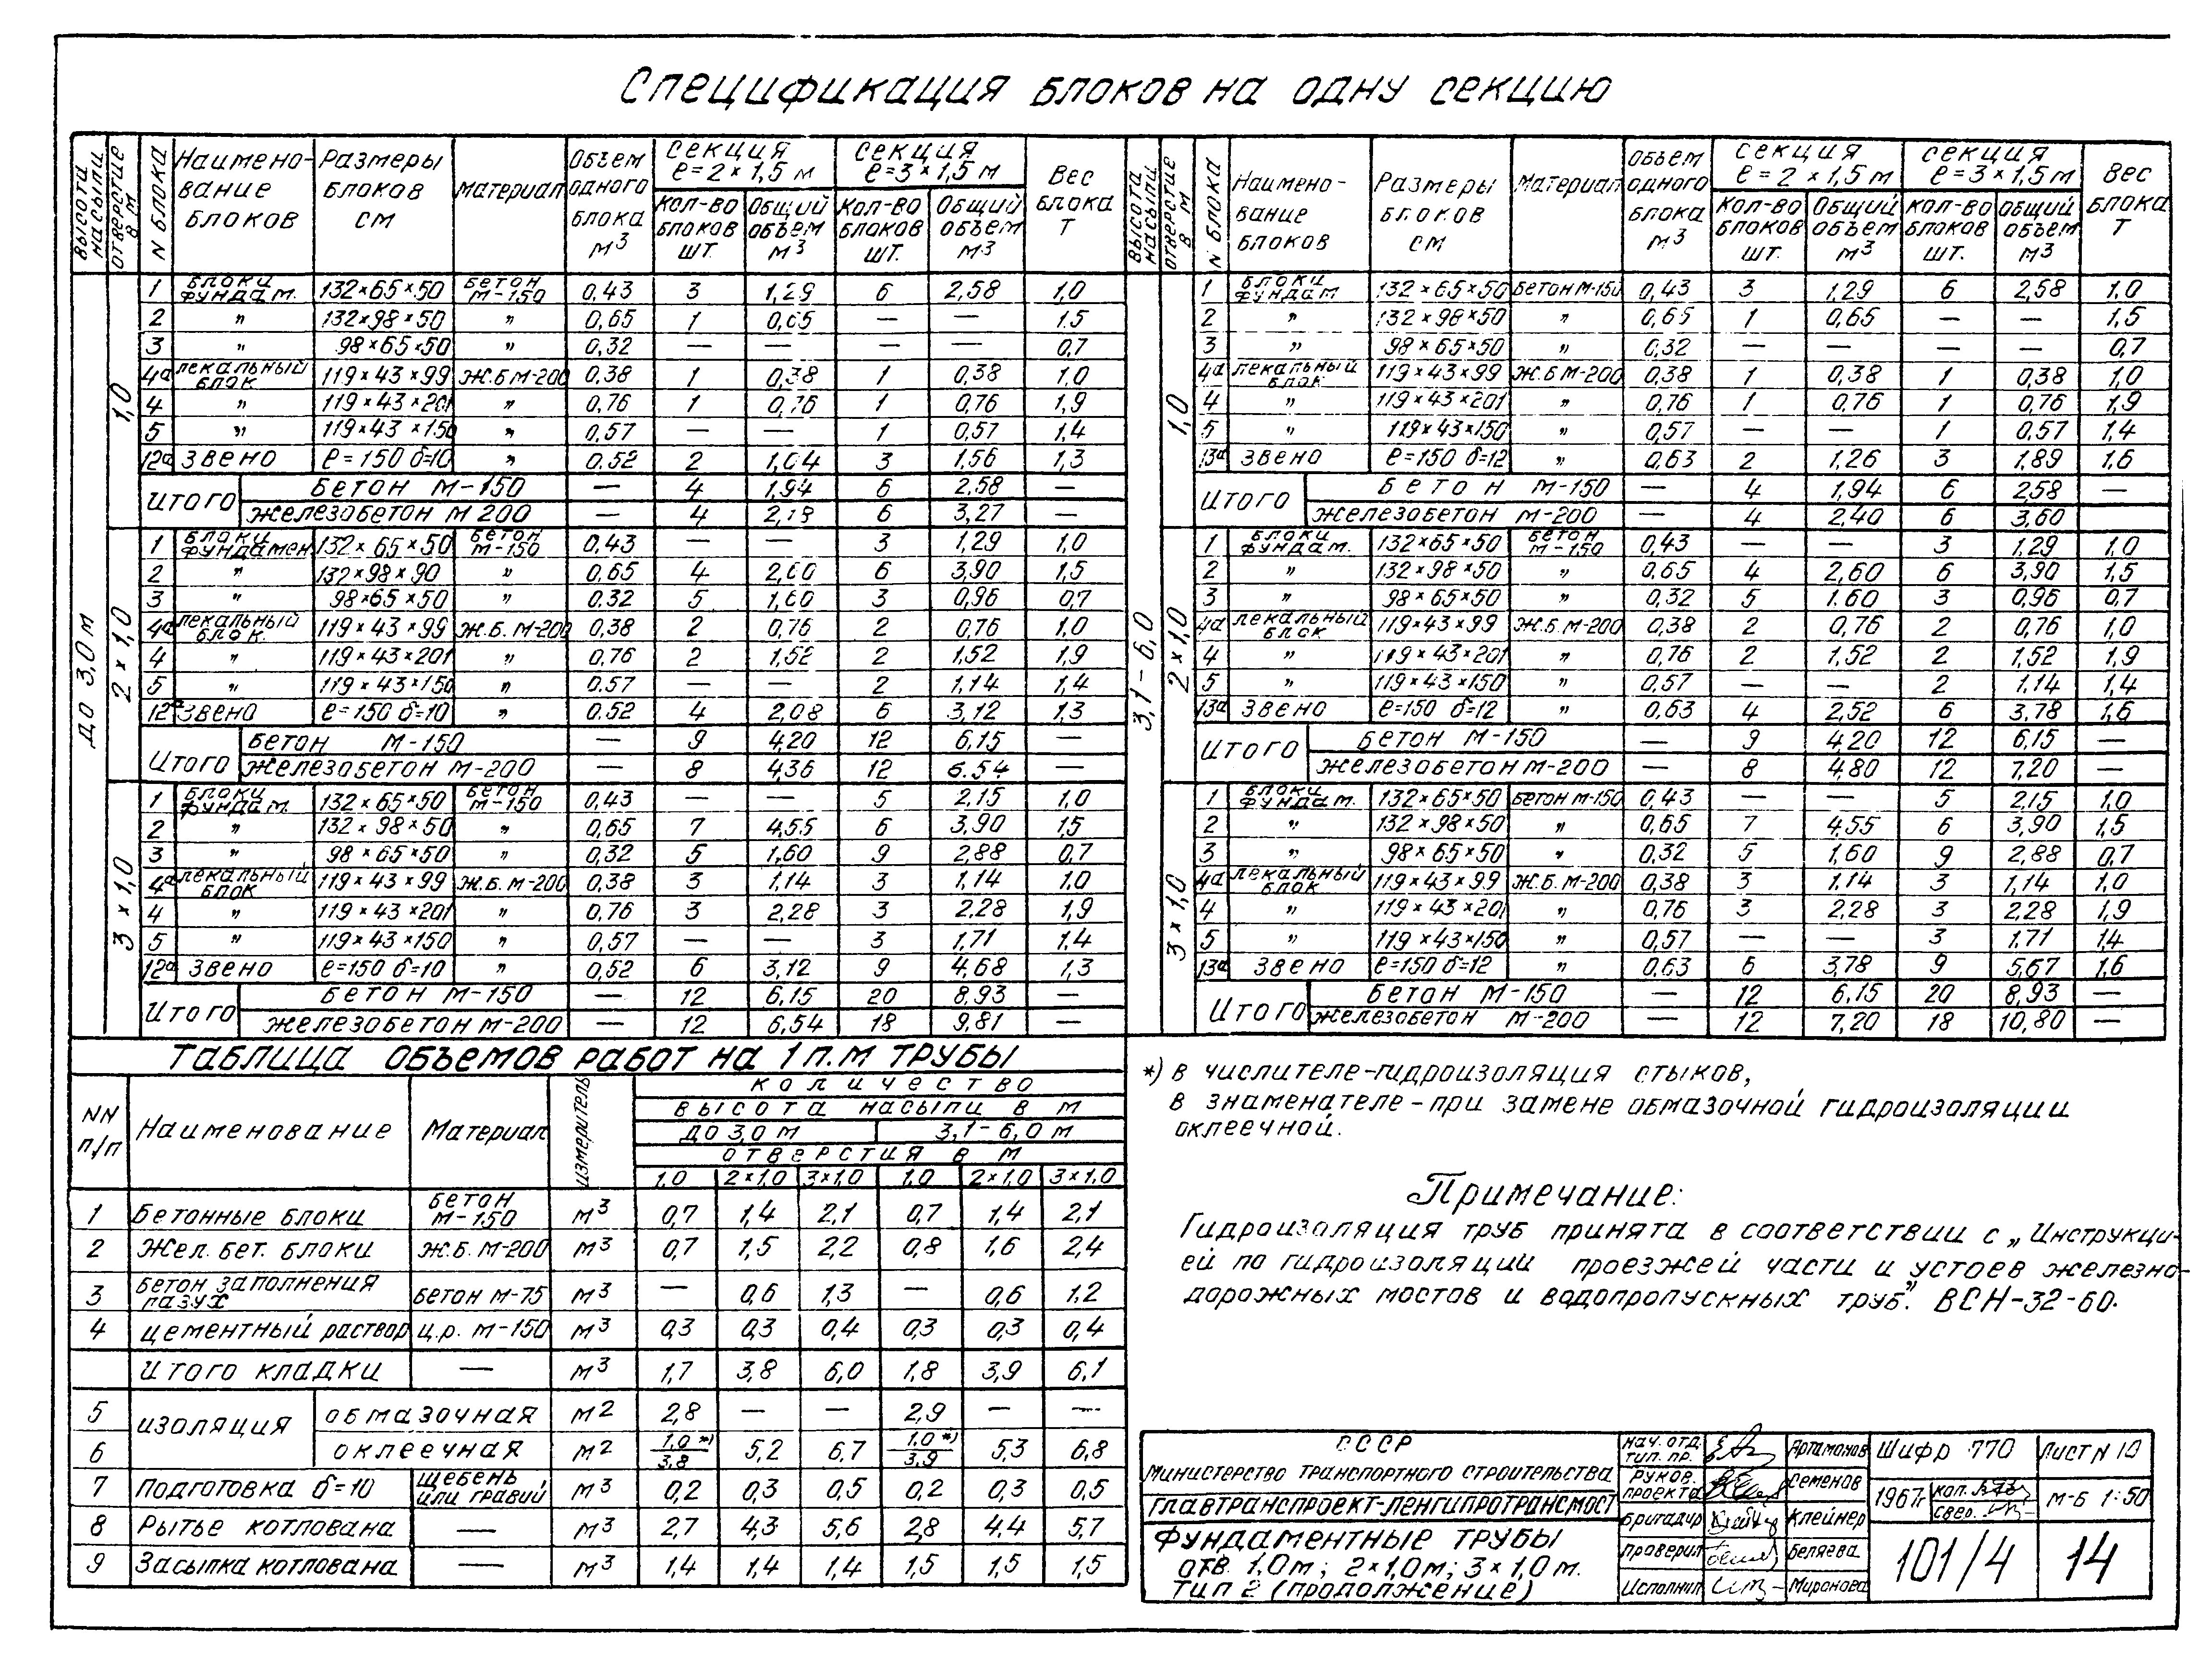 Спецификация блоков на одну секцию
Высота насыпи | Отверстие в м | N блока | Наименование блоков | Размеры блоков см | Материал | Объем одного блока м³ | Секция ℓ=2×1,5 м | Секция ℓ=3×1,5 м | Вес блока Т
Кол-во блоков шт. | Общий объем м³ | Кол-во блоков шт. | Общий объем м³
до 3,0 м
1,0
1 | Блоки фундам. | 132×65×50 | Бетон М-150 | 0,43 | 3 | 1,29 | 6 | 2,58 | 1,0
2 | " | 132×98×50 | " | 0,65 | 1 | 0,65 | — | — | 1.5
3 | " | 98×65×50 | " | 0,32 | — | — | — | — | 0,7
4а | Лекальный блок | 119×43×99 | Ж.Б М-200 | 0,38 | 1 | 0,38 | 1 | 0,38 | 1,0
4 | " | 119×43×201 | " | 0,76 | 1 | 0,76 | 1 | 0,76 | 1,9
5 | " | 119×43×150 | " | 0,57 | — | — | 1 | 0,57 | 1,4
12а | Звено | ℓ=150 δ=10 | " | 0.52 | 2 | 1,04 | 3 | 1,56 | 1,3
Итого | Бетон М-150 | — | 4 | 1,94 | 6 | 2,58 | —
Железобетон М 200 | — | 4 | 2,18 | 6 | 3,27 | —
2×1,0
1 | Блоки фундамен. | 132×65×50 | Бетон М-150 | 0,43 | — | — | 3 | 1,29 | 1,0
2 | " | 132×98×90 | " | 0,65 | 4 | 2,60 | 6 | 3,90 | 1,5
3 | " | 98×65×50 | " | 0.32 | 5 | 1,60 | 3 | 0,96 | 0,7
4а | Лекальный блок. | 119×43×99 | Ж.Б. М-200 | 0,38 | 2 | 0,76 | 2 | 0,76 | 1,0
4 | " | 119×43×201 | " | 0,76 | 2 | 1,52 | 2 | 1,52 | 1,9
5 | " | 119×43×150 | " | 0.57 | — | — | 2 | 1,14 | 1,4
12а | Звено | ℓ=150 δ=10 | " | 0.52 | 4 | 2,08 | 6 | 3,12 | 1,3
Итого | Бетон М-150 | — | 9 | 4,20 | 12 | 6,15 | —
Железобетон М-200 | — | 8 | 4,36 | 12 | 6.54 | —
3×1,0
1 | Блоки фундам. | 132×65×50 | Бетон М-150 | 0,43 | — | — | 5 | 2,15 | 1,0
2 | " | 132×98×50 | " | 0,65 | 7 | 4,55 | 6 | 3,90 | 1,5
3 | " | 98×65×50 | " | 0,32 | 5 | 1,60 | 9 | 2,88 | 0,7
4а | Лекальный блок | 119×43×99 | Ж.Б. М-200 | 0,38 | 3 | 1,14 | 3 | 1,14 | 1.0
4 | " | 119×43×201 | " | 0,76 | 3 | 2,28 | 3 | 2.28 | 1,9
5 | " | 119×43×150 | " | 0,57 | — | — | 3 | 1,71 | 1,4
12а | Звено | ℓ=150 δ=10 | " | 0,52 | 6 | 3,12 | 9 | 4,68 | 1,3
Итого | Бетон М-150 | — | 12 | 6,15 | 20 | 8,93 | —
Железобетон М-200 | — | 12 | 6,54 | 18 | 9,81 | —
Высота насыпи | Отверстие в м | N блока | Наименование блоков | Размеры блоков см | Материал | Объем одного блока м³ | Секция ℓ=2×1,5 м | Секция ℓ=3×1,5 м | Вес блока Т
Кол-во блоков шт. | Общий объем м³ | Кол-во блоков шт. | Общий объем м³
3,1-6,0
1,0
1 | Блоки фундам | 132×65×50 | Бетон М-150 | 0,43 | 3 | 1,29 | 6 | 2,58 | 1,0
2 | " | 132×98×50 | " | 0,65 | 1 | 0,65 | — | — | 1,5
3 | " | 98×65×50 | " | 0,32 | — | — | — | — | 0,7
4а | Лекальный блок | 119×43×99 | Ж.Б М-200 | 0,38 | 1 | 0,38 | 1 | 0,38 | 1,0
4 | " | 119×43×201 | " | 0,76 | 1 | 0,76 | 1 | 0,76 | 1,9
5 | " | 119×43×150 | " | 0,57 | — | — | 1 | 0,57 | 1,4
13а | Звено | ℓ=150 δ=12 | " | 0,63 | 2 | 1,26 | 3 | 1,89 | 1,6
Итого | Бетон М-150 | — | 4 | 1,94 | 6 | 2,58 | —
Железобетон М-200 | — | 4 | 2,40 | 6 | 3,60 | —
2×1,0
1 | Блоки фундам. | 132×65×50 | Бетон М-150 | 0,43 | — | — | 3 | 1,29 | 1,0
2 | " | 132×98×50 | " | 0,65 | 4 | 2,60 | 6 | 3,90 | 1,5
3 | " | 98×65×50 | " | 0,32 | 5 | 1.60 | 3 | 0,96 | 0,7
4а | Лекальный блок | 119×43×99 | Ж.Б. М-200 | 0,38 | 2 | 0,76 | 2 | 0,76 | 1,0
4 | " | 119×43×201 | " | 0,76 | 2 | 1,52 | 2 | 1,52 | 1,9
5 | " | 119×43×150 | " | 0,57 | — | — | 2 | 1,14 | 1,4
13а | Звено | ℓ=150 δ=12 | " | 0,63 | 4 | 2,52 | 6 | 3,78 | 1,6
Итого | Бетон М-150 | — | 9 | 4,20 | 12 | 6,15 | —
Железобетон М-200 | — | 8 | 4,80 | 12 | 7,20 | —
3×1,0
1 | Блоки фундам. | 132×65×50 | Бетон М-150 | 0,43 | — | — | 5 | 2,15 | 1,0
2 | " | 132×98×50 | " | 0,65 | 7 | 4,55 | 6 | 3,90 | 1,5
3 | " | 98×65×50 | " | 0,32 | 5 | 1,60 | 9 | 2,88 | 0,7
4а | Лекальный блок | 119×43×99 | Ж.Б. М-200 | 0,38 | 3 | 1,14 | 3 | 1,14 | 1,0
4 | " | 119×43×201 | " | 0,76 | 3 | 2,28 | 3 | 2,28 | 1,9
5 | " | 119×43×150 | " | 0,57 | — | — | 3 | 1.71 | 1,4
13а | Звено | ℓ=150 δ=12 | " | 0,63 | 6 | 3,78 | 9 | 5,67 | 1,6
Итого | Бетон М-150 | — | 12 | 6,15 | 20 | 8,93 | —
Железобетон М-200 | — | 12 | 7,20 | 18 | 10,80 | —
Таблица объемов работ на 1 п.м трубы
NN п/п | Наименование | Материал | Измеритель | Количество
Высота насыпи в м
до 3,0 м | 3,1-6,0 м
Отверстия в м
1,0 | 2×1,0 | 3×1,0 | 1,0 | 2×1,0 | 3×1,0
1 | Бетонные блоки | Бетон М-150 | м³ | 0,7 | 1,4 | 2,1 | 0,7 | 1,4 | 2,1
2 | Жел. бет. блоки | Ж.Б. М-200 | м³ | 0,7 | 1,5 | 2,2 | 0,8 | 1,6 | 2,4
3 | Бетон заполнения пазух | Бетон М-75 | м³ | — | 0,6 | 1,3 | — | 0,6 | 1.2
4 | Цементный раствор | Ц.р. М-150 | м³ | 0,3 | 0,3 | 0,4 | 0,3 | 0,3 | 0,4
Итого кладки | — | м³ | 1,7 | 3,8 | 6,0 | 1,8 | 3,9 | 6,1
5 | Изоляция | обмазочная | м² | 2,8 | — | — | 2,9 | — | —
6 | оклеечная | м² | 1,0 *)/3,8 | 5,2 | 6,7 | 1,0 *)/3,9 | 5,3 | 6,8
7 | Подготовка δ=10 | Щебень или гравий | м³ | 0,2 | 0,3 | 0,5 | 0,2 | 0,3 | 0,5
8 | Рытье котлована | — | м³ | 2,7 | 4,3 | 5,6 | 2,8 | 4,4 | 5,7
9 | Засыпка котлована | — | м³ | 1,4 | 1,4 | 1,4 | 1,5 | 1,5 | 1,5
*) В числителе-гидроизоляция стыков,
в знаменателе-при замене обмазочной гидроизоляции
оклеечной.
Примечание:
Гидроизоляция труб принята в соответствии с „Инструкци-
ей по гидроизоляции проезжей части и устоев железно-
дорожных мостов и водопропускных труб". ВСН-32-60.
СССР
Министерство транспортного строительства
Главтранспроект-Ленгипротрансмост
Фундаментные трубы
отв. 1,0м; 2×1,0м; 3×1,0м.
Тип 2 (продолжение)
Нач. отд. тип. пр. | Артамонов
Руков. проекта | Семенов
Бригадир | Клейнер
Проверил | Беляева
Исполнил | Миронова
Шифр 770 | Лист N 10
1967г | коп. | М-Б 1:50
свер.
101/4 | 14